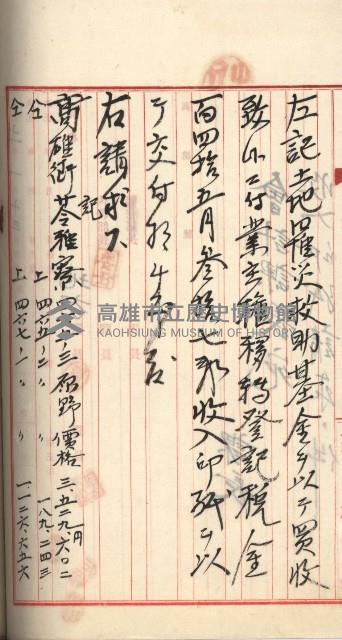 左記土地羅災救助基金ヲ以テ買收
致候ニ付業主權移轉登記稅金
百四拾五円參拾七戔收入印紙ヲ以
テ交付相成度
右請求ス
記
高雄街苓雅寮 四六三 原野 價格 三、五二九円、六〇二
仝 上 四六五ノ二 〃 〃 一八九、二四三
仝 上 四六七ノ一 〃 〃 一一二六、六五六
高雄市立歷史博物館
KAOHSIUNG MUSEUM OF HISTORY